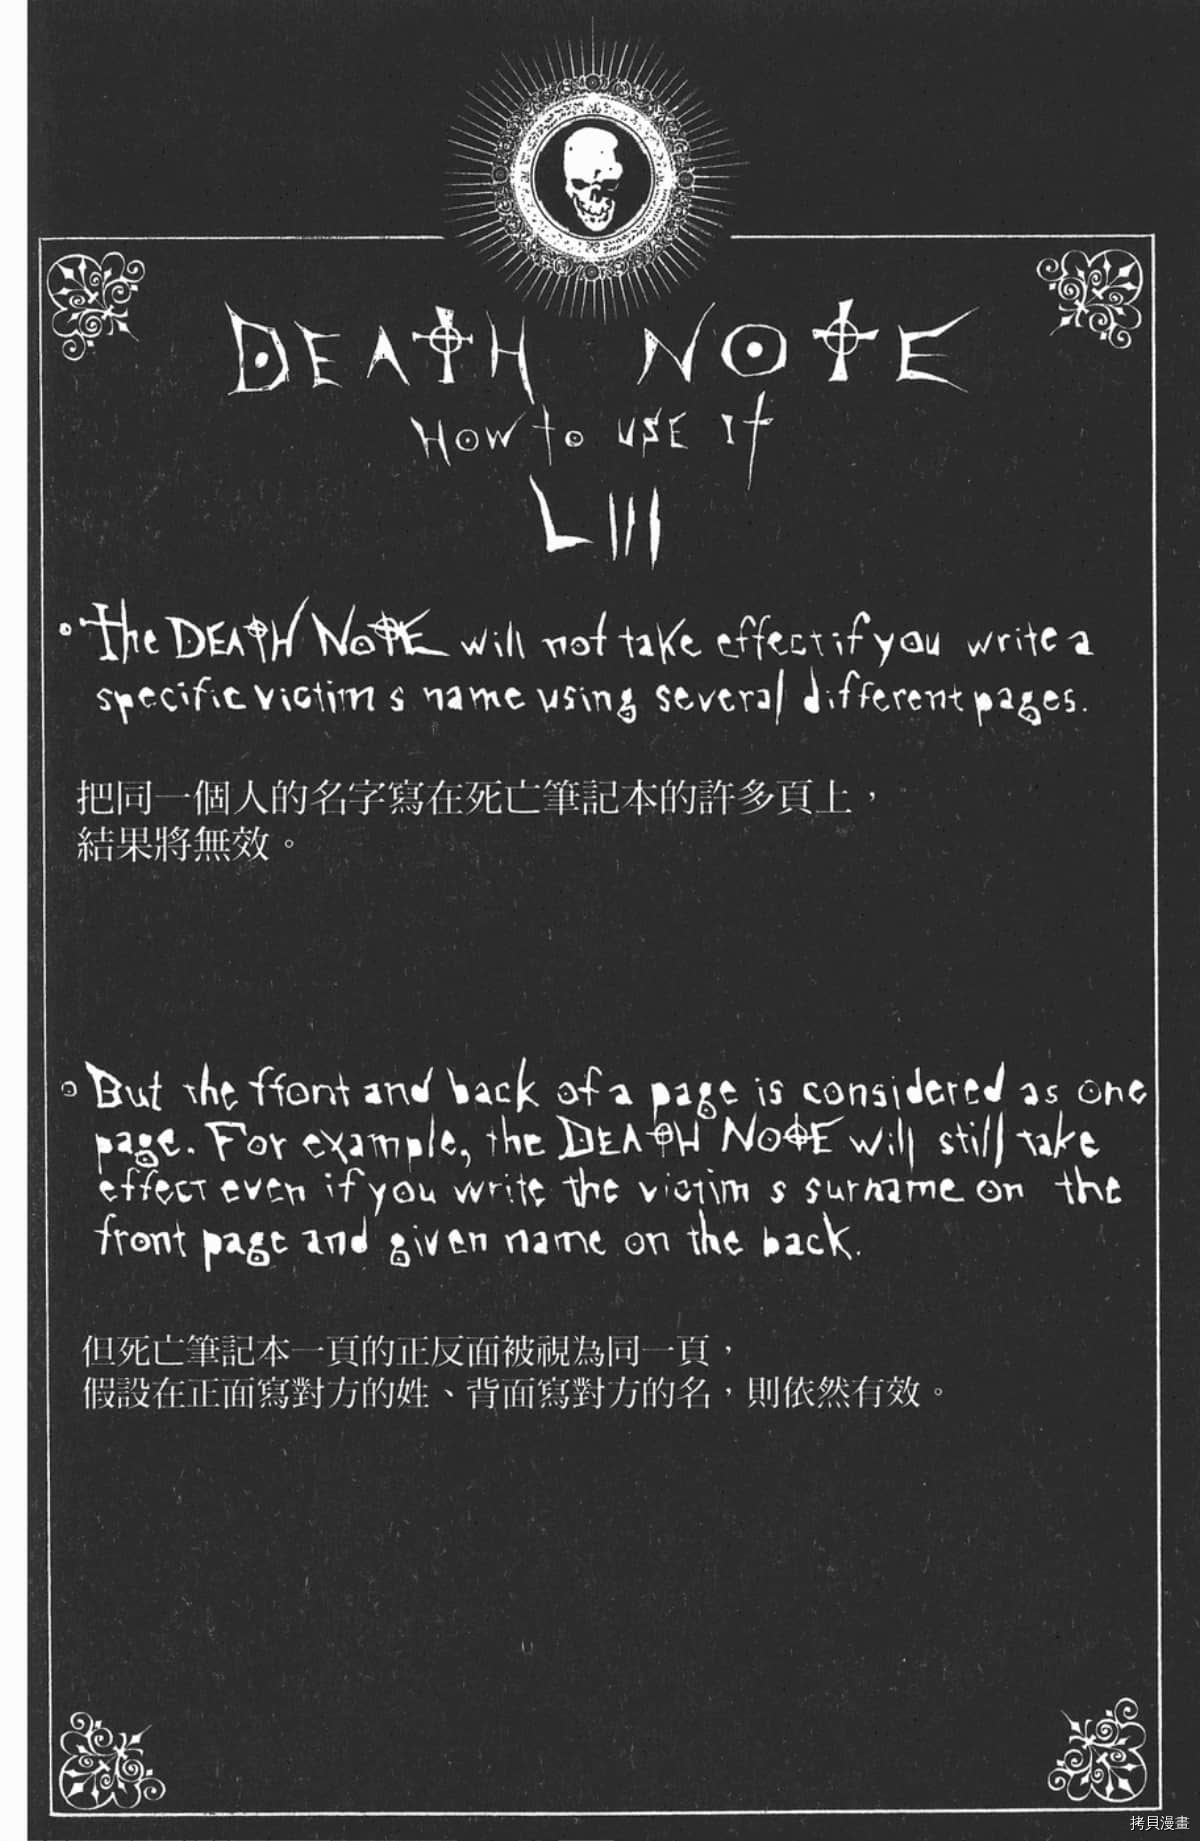 DEATH NOTE
HOW to USE It
LIII
• The DEATH NOTE will not take effect if you write a
specific victim s name using several different pages.
把同一個人的名字寫在死亡筆記本的許多頁上，
結果將無效。
• But the ffont and back of a page is considered as one
page. For example, the DEATH NOTE will still take
effect even if you write the victim s surname on the
front page and given name on the back.
但死亡筆記本一頁的正反面被視為同一頁，
假設在正面寫對方的姓、背面寫對方的名，則依然有效。
拷貝漫畫